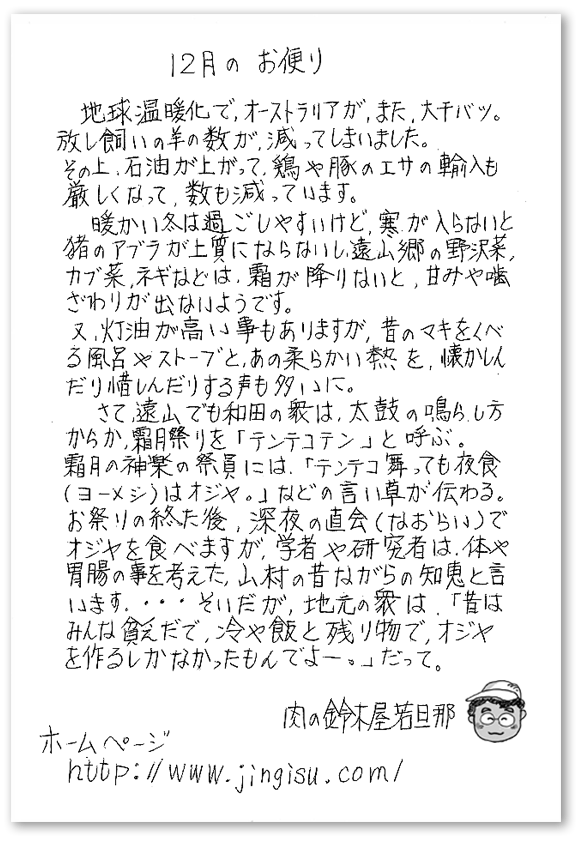 12月の お便り
地球温暖化で、オーストラリアが、また、大干バツ。
放し飼いの羊の数が、減ってしまいました。
その上、石油が上がって、鶏や豚のエサの輸入も
厳しくなって、数も減っています。
暖かい冬は過ごしやすいけど、寒が入らないと
猪のアブラが上質にならないし、遠山郷の野沢菜、
カブ菜、ネギなどは、霜が降りないと、甘みや歯
ざわりが出ないようです。
又、灯油が高い事もありますが、昔のマキをくべ
る風呂やストーブと、あの柔らかい熱を、懐かしん
だり惜しんだりする声も多いに。
さて、遠山でも和田の衆は、太鼓の鳴らし方
からか、霜月祭りを「テンテコテン」と呼ぶ。
霜月の神楽の祭員には、「テンテコ舞っても夜食
(ヨーメシ)はオジヤ。」などの言い草が伝わる。
お祭りの終た後、深夜の直会(なおらい)で
オジヤを食べますが、学者や研究者は、体や
胃腸の事を考えた、山村の昔ながらの知恵と言
います。・・・そいだが、地元の衆は、「昔は
みんな貧乏だで、冷や飯と残り物で、オジヤ
を作るしかなかったもんでよー。」だって。
肉の鈴木屋若旦那
ホームページ
http://www.jingisu.com/